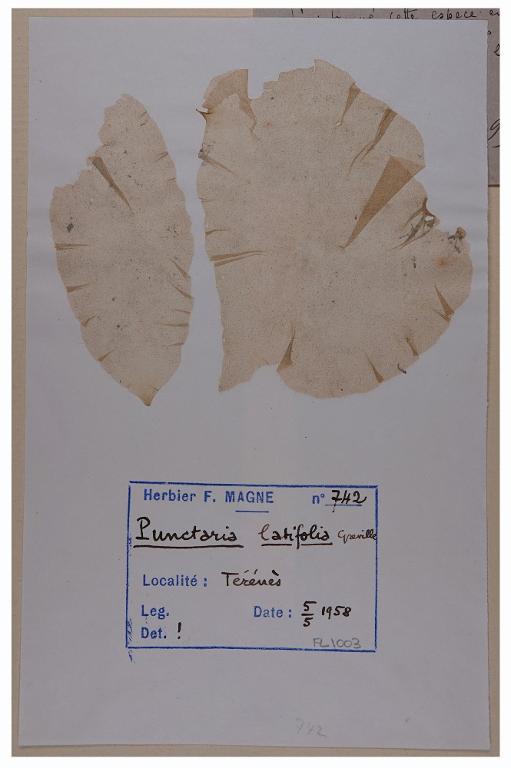 cette espece en
Herbier F. MAGNE n° 742
Punctaria latifolia Greville
Localité : Térénès
Leg. Date : 5/5 1958
Det. !
FL1003
742